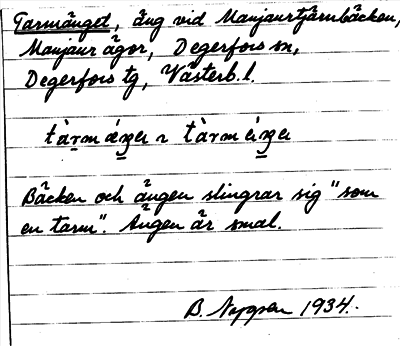 Tarmänget, äng vid Manjaurtjärnbäcken,
Manjaur ägor, Degerfors sn,
Degerfors tg, Västerb. l.
Bäcken och ängen slingrar sig "som
en tarm". Ängen är smal.
B. 1934.